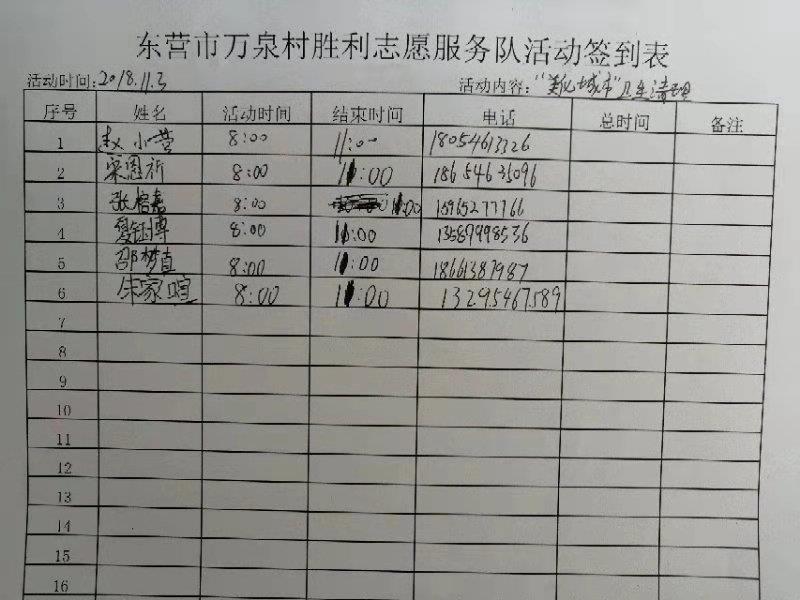 东营市万泉村胜利志愿服务队活动签到表
活动时间:2018.11.3 活动内容:"美化城市"卫生清理
序号 姓名 活动时间 结束时间 电话 总时间 备注
1 赵小营 8:00 11:00 18054613326
2 宋恩祈 8:00 11:00 18654635096
3 张榕嘉 8:00 11:00 15965277766
4 夏钰博 8:00 11:00 13589998536
5 邵梦直 8:00 11:00 18661387987
6 朱家暄 8:00 11:00 13295467589
7
8
9
10
11
12
13
14
15
16